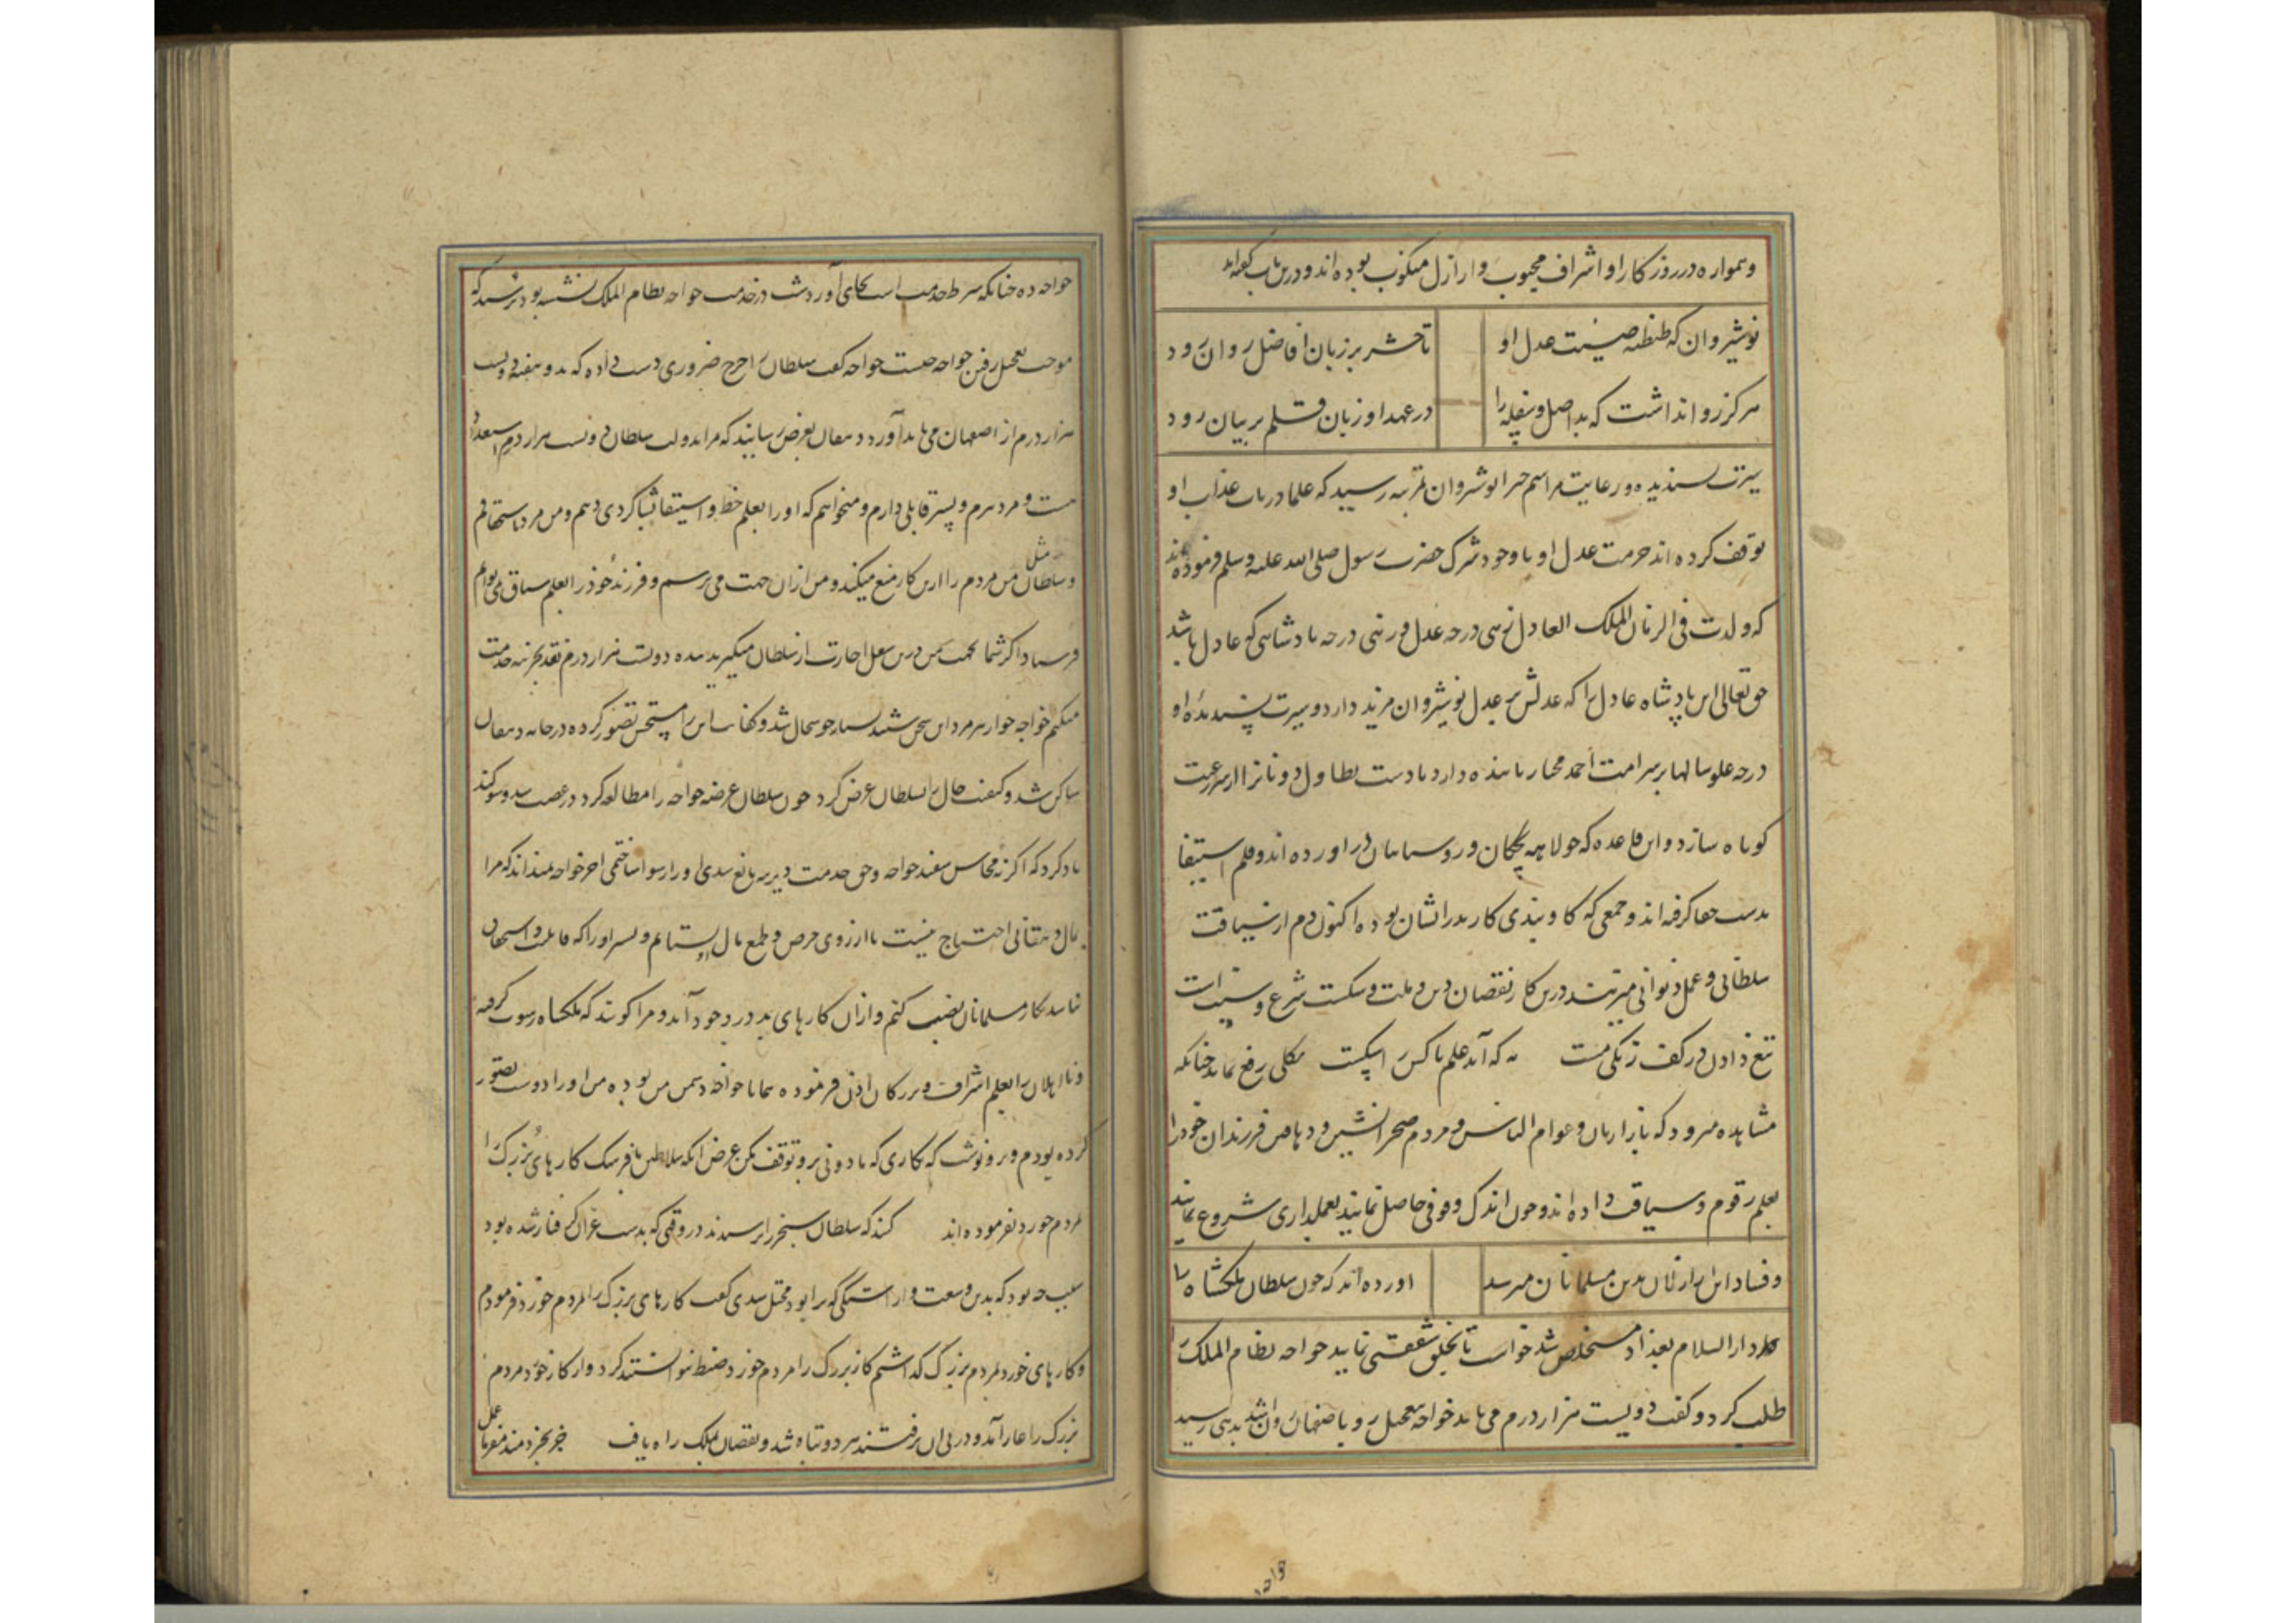 وهمواره در روزکار او اشراف محبوب و ارازل منکوب بوده اند و درین باب گفته اند
نوشیروان که طنطنه صیت عدل او
تا حشر بر زبان افاضل روان رود
هرکز روا نداشت که بد اصل و سفله را
در عهد او زبان قلم بر بیان رود
سیرت پسندیده و رعایت مراسم خیر انوشروان بمرتبه رسید که علما در باب عذاب او
توقف کرده اند حرمت عدل او با وجود شرک حضرت رسول صلی الله علیه وسلم فرموده اند
که ولدت فی الزمان الملک العادل زهی درجه عدل و زهی درجه پادشاهی که عادل باشد
حق تعالی این پادشاه عادل را که عدلش بر عدل نوشیروان مزید دارد و سیرت پسندیده او
درجه علو سالها بر سر امت احمد مختار پاینده دارد تا دست تطاول دونانرا از سر رعیت
کوتاه سازد و این قاعده که جولاهه بچکان و روستاییان در اورده اند و قلم استیفا
بدست جفا کرفته اند و جمعی که کاوبندی کار پدر ایشان بوده اکنون دم از سیاقت
سلطانی و عمل دیوانی میزنند درین کار نقصان دین و ملت و شکست شرع و سنت است
تیغ دادن در کف زنکی مست به که آید علم ناکس را بدست بکلی رفع نماید چنانکه
مشاهده میرود که بازاریان و عوام الناس و مردم صحرانشین و دهاقین فرزندان خود را
بعلم رقوم و سیاقت داده اند و چون اندک وقوفی حاصل نمایند بعملداری شروع نمایند
و فساد این ارزلان بدین مسلمانان میرسد
اورده اند که چون سلطان ملکشاه را
دار السلام بغداد مستخلص شد خواست تا بخلق شفقتی نماید خواجه نظام الملک را
طلب کرد و کفت دویست هزار درم می باید خواجه بتعجیل رو باصفهان روان شد بدهی رسید
خواجه ده چنانکه شرط خدمت است بجای آورد شب در خدمت خواجه نظام الملک نشسته بود پرسید که
موجب تعجیل رفتن خواجه چیست خواجه کفت سلطان را خرج ضروری دست داده که بدو هفته دویست
هزار درم از اصفهان می باید آورد دهقان بعرض رسانید که مرا بدولت سلطان دویست هزار درم
هست و مرد پیرم و پسر قابلی دارم و میخواهم که او را بعلم خط و استیفا بشاکردی دهم و من مرد دهقانم
و سلطان مثل من مردم را ازین کار منع میکند و من ازان جهت می ترسم و فرزند خود را بعلم سیاق نمی توانم
فرستاد اکر شما بجهت من درین شغل اجازت از سلطان میکیرید بنده دویست هزار درم نقد بخزینه خدمت
میکنم خواجه چون از پیر مرد این سخن شنید بسیار خوشحال شد و کفایت این را مستحسن تصور کرده در خانه دهقان
ساکن شد و کیفیت حال را بسلطان عرض کرد چون سلطان عرضه خواجه را مطالعه کرد در غضب شد و سوکند
یاد کرد که اکر نه محاسن سفید خواجه و حق خدمت دیرینه مانع شدی او را رسوا ساختمی اخر خواجه میداند که مرا
بمال دهقانی احتیاج نیست با ارزوی حرص و طمع مال بستانم و پسر او را که قابلیت و استحقاق
نباشد بکار مسلمانان نصب کنم و ازان کارهای بد در وجود آید و مرا کویند که ملکشاه رشوت کرفته
و نا اهلان را بعلم اشراف و بزرکان اذن فرموده همانا خواجه دشمن من بوده من او را دوست تصور
کرده بودم و برو نوشت که کاری که با دونی برو توقف مکن غرض انکه سلاطین بافرهنک کارهای بزرک را
بمردم خورد نفرموده اند کنند که سلطان سنجر را پرسیدند در وقتی که بدست غزان کرفتار شده بود
سبب چه بود که بدین وسعت و اراستکی که ترا بود مختل شدی کفت کارهای بزرک را بمردم خورد فرمودم
و کارهای خورد بمردم بزرک که داشتم کار بزرک را مردم خورد ضبط نتوانستند کرد و از کار خورد مردم
بزرک را عار آمد و در پی ان نرفتند هر دو تباه شد و نقصان بملک راه یافت جز بخردمند مفرما عمل
خواجه